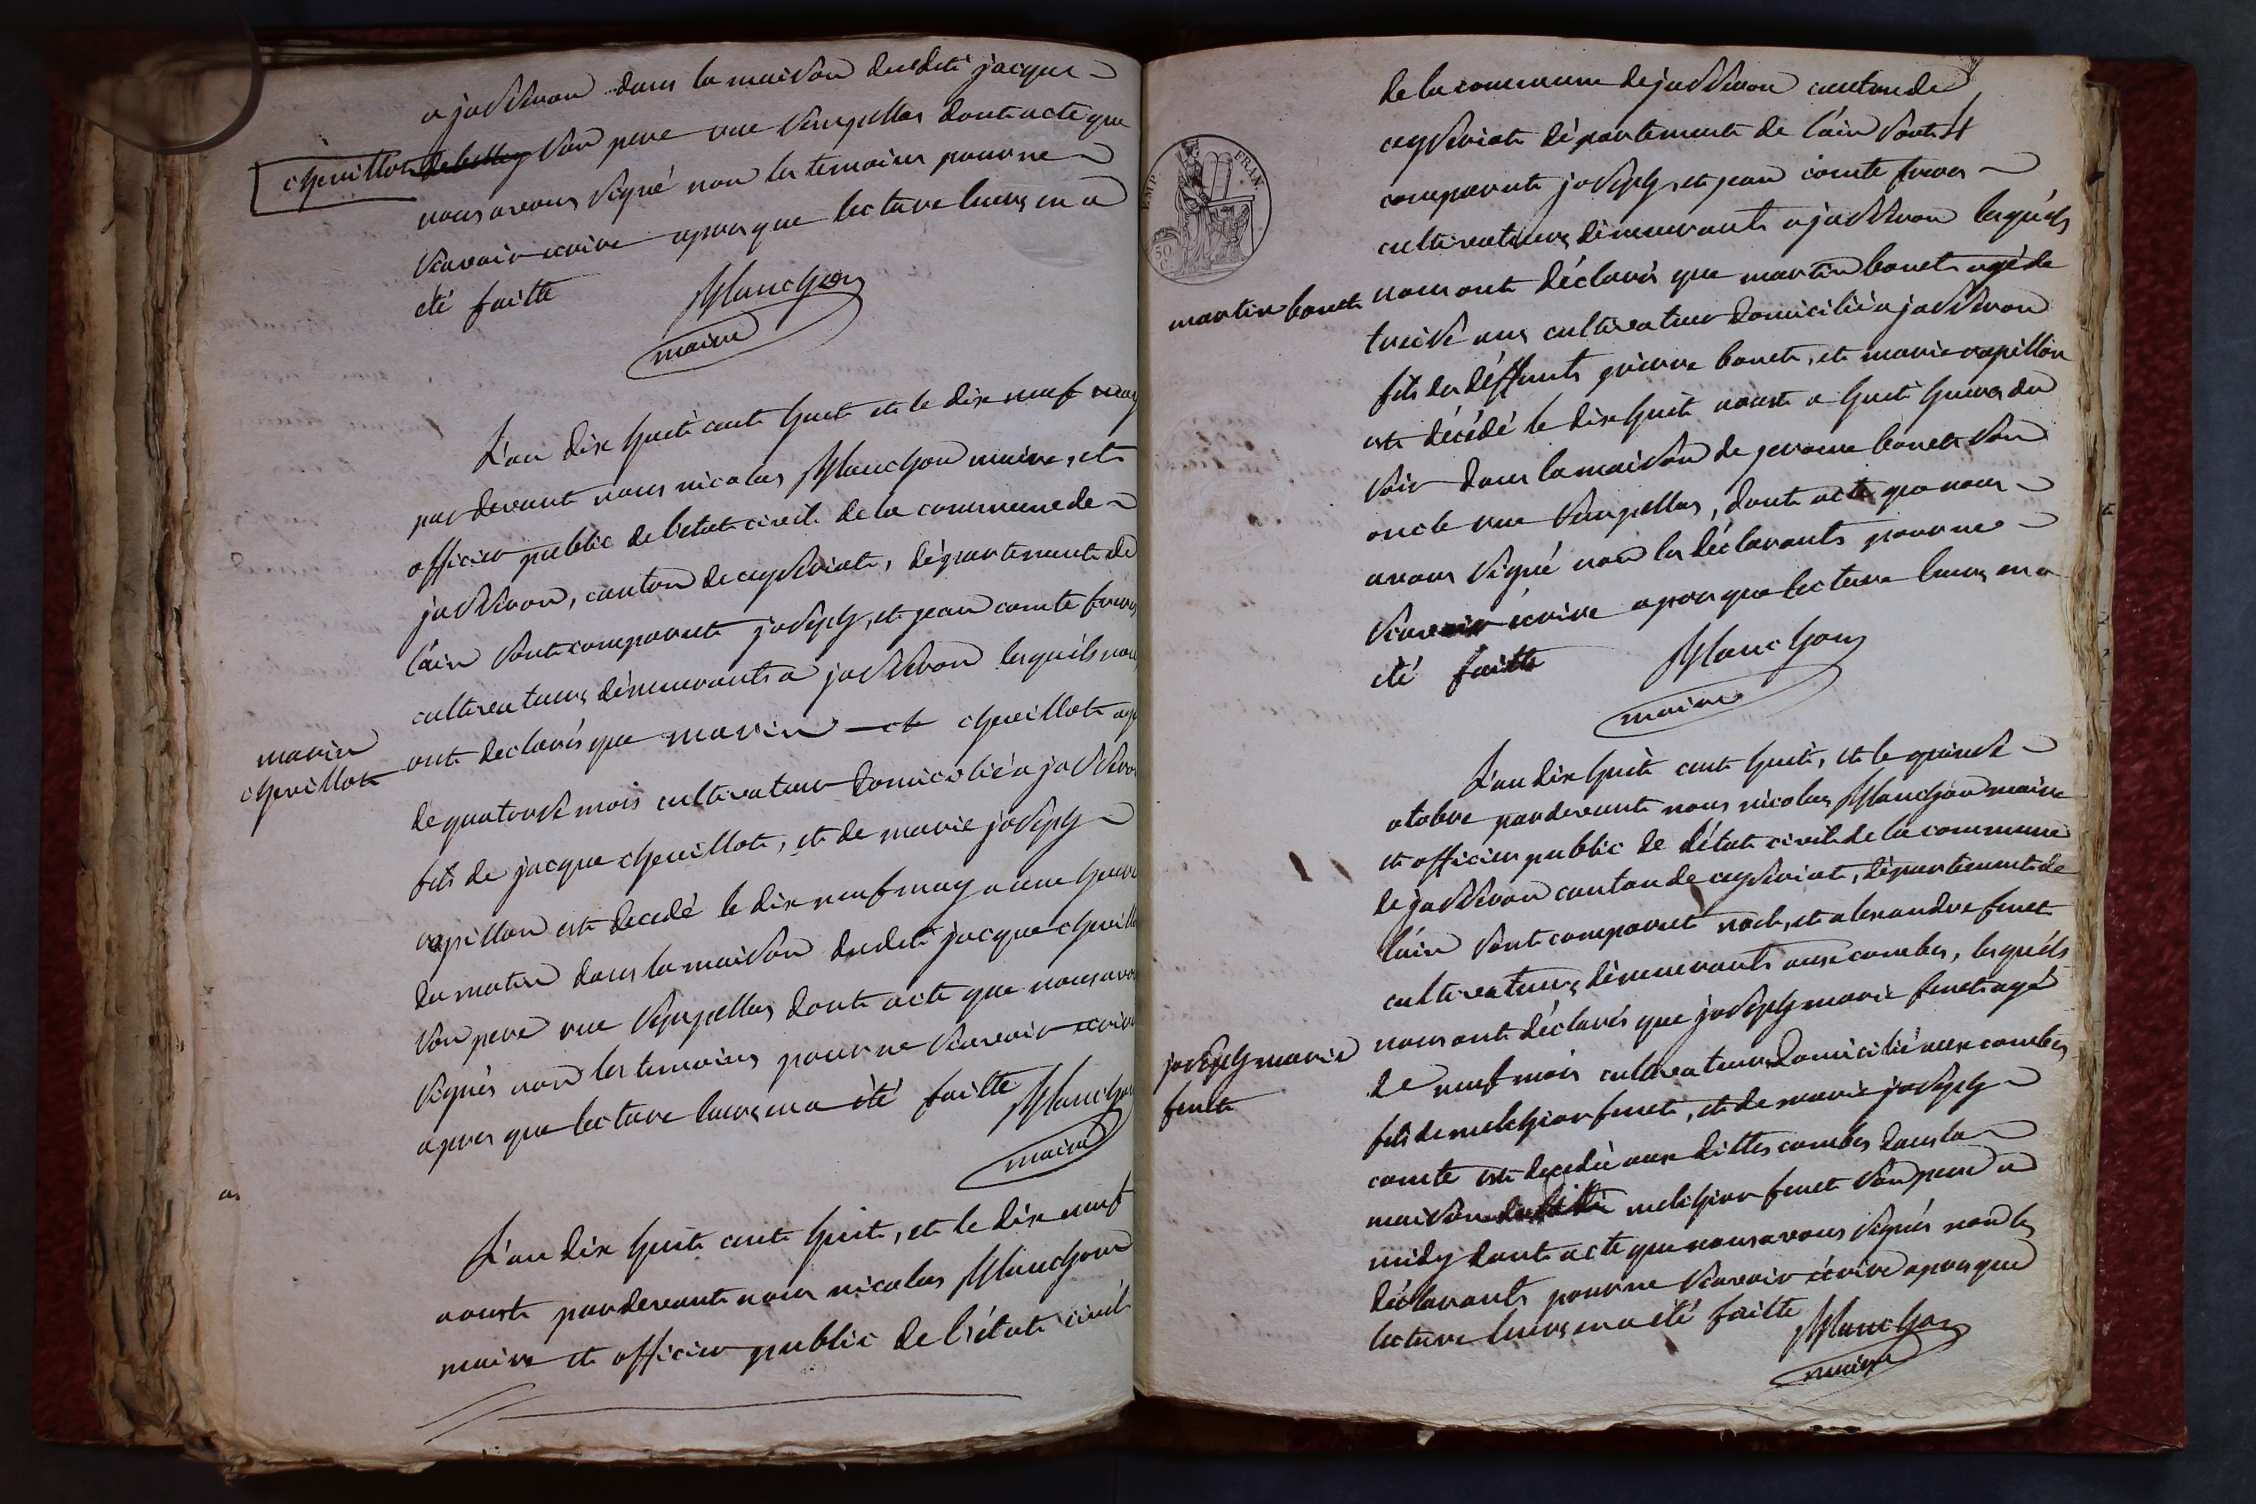 a jasseron dans la maison dudit jacque
chevillot son pere rue dompellas dont acte que
nous avons signé non les temoins pour ne
scavoir ecrire apres que lecture leurs en a
été faitte
Manchon
maire
L'an dix huit cent huit et le dix neuf may
par devant nous nicolas Manchon maire, et
officier public de l'etat civil de la commune de
jasseron, canton de ceyseriat, département de
l'ain sont comparut joseph, et jean comte freres
cultivateurs démeurants a jasseron lesquels nous
marin
chevillot
ont declarés que marin chevillot agé
de quatorse mois cultivateur domicilié a jasseron
fils de jacque chevillot, et de marie joseph
vapillon est decedé le dix neuf may a une heure
du matin dans la maison dudit jacque chevillot
son pere rue dont acte que nous avons
signés non les temoins pour ne scavoir ecrire
apres que lecture leurs en a été faitte
Manchon
maire
L'an dix huit cent huit, et le dix neuf
aoust pardevant nous nicolas Manchon
maire et officier public de l'état civil
de la commune de jasseron canton de
ceyseriat département de l'ain sont
comparut joseph, et jean comte freres
cultivateurs démeurants a jasseron lesquels
EMP. FRAN.
50
martin bonet
nous ont déclarés que martin bonet agé de
treise ans cultivateur domicilié a jasseron
fils des déffunts pierre bonet, et marie vapillon
est décédé le dix huit aoust a huit heures du
soir dans la maison de jerome bonet son
oncle rue, dont acte que nous
avons signé non les déclarants pour ne
scavoir écrire apres que lecture leurs en a
été faitte
Manchon
maire
L'an dix huit cent huit, et le quinse
octobre pardevant nous nicolas Manchon maire
et officier public de l'état civil de la commune
de jasseron canton de ceyseriat, département de
l'ain sont comparut roch, et alexandre feuet
cultivateurs démeurants aux combes, lesquels
nous ont déclarés que joseph marie feuet agé
joseph marie
feuet
de neuf mois cultivateur domicilié aux combes
fils de melchior feuet, et de marie joseph
comte est decedé aux dittes combes dans la
maison melchior feuet son pere a
midy dont acte que nous avons signés non les
déclarants pour ne scavoir écrire apres que
lecture leurs en a été faitte
Manchon
maire